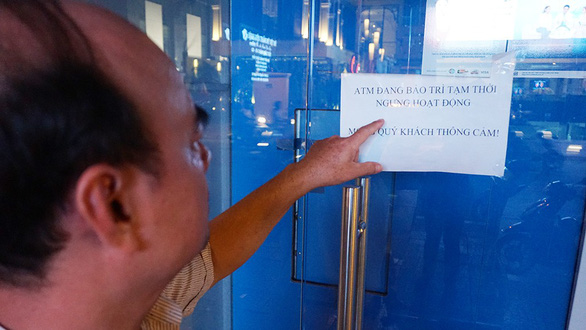 ATM ĐANG BẢO TRÌ TẠM THỜI
NGƯNG HOẠT ĐỘNG
QUÝ KHÁCH THÔNG CẢM!